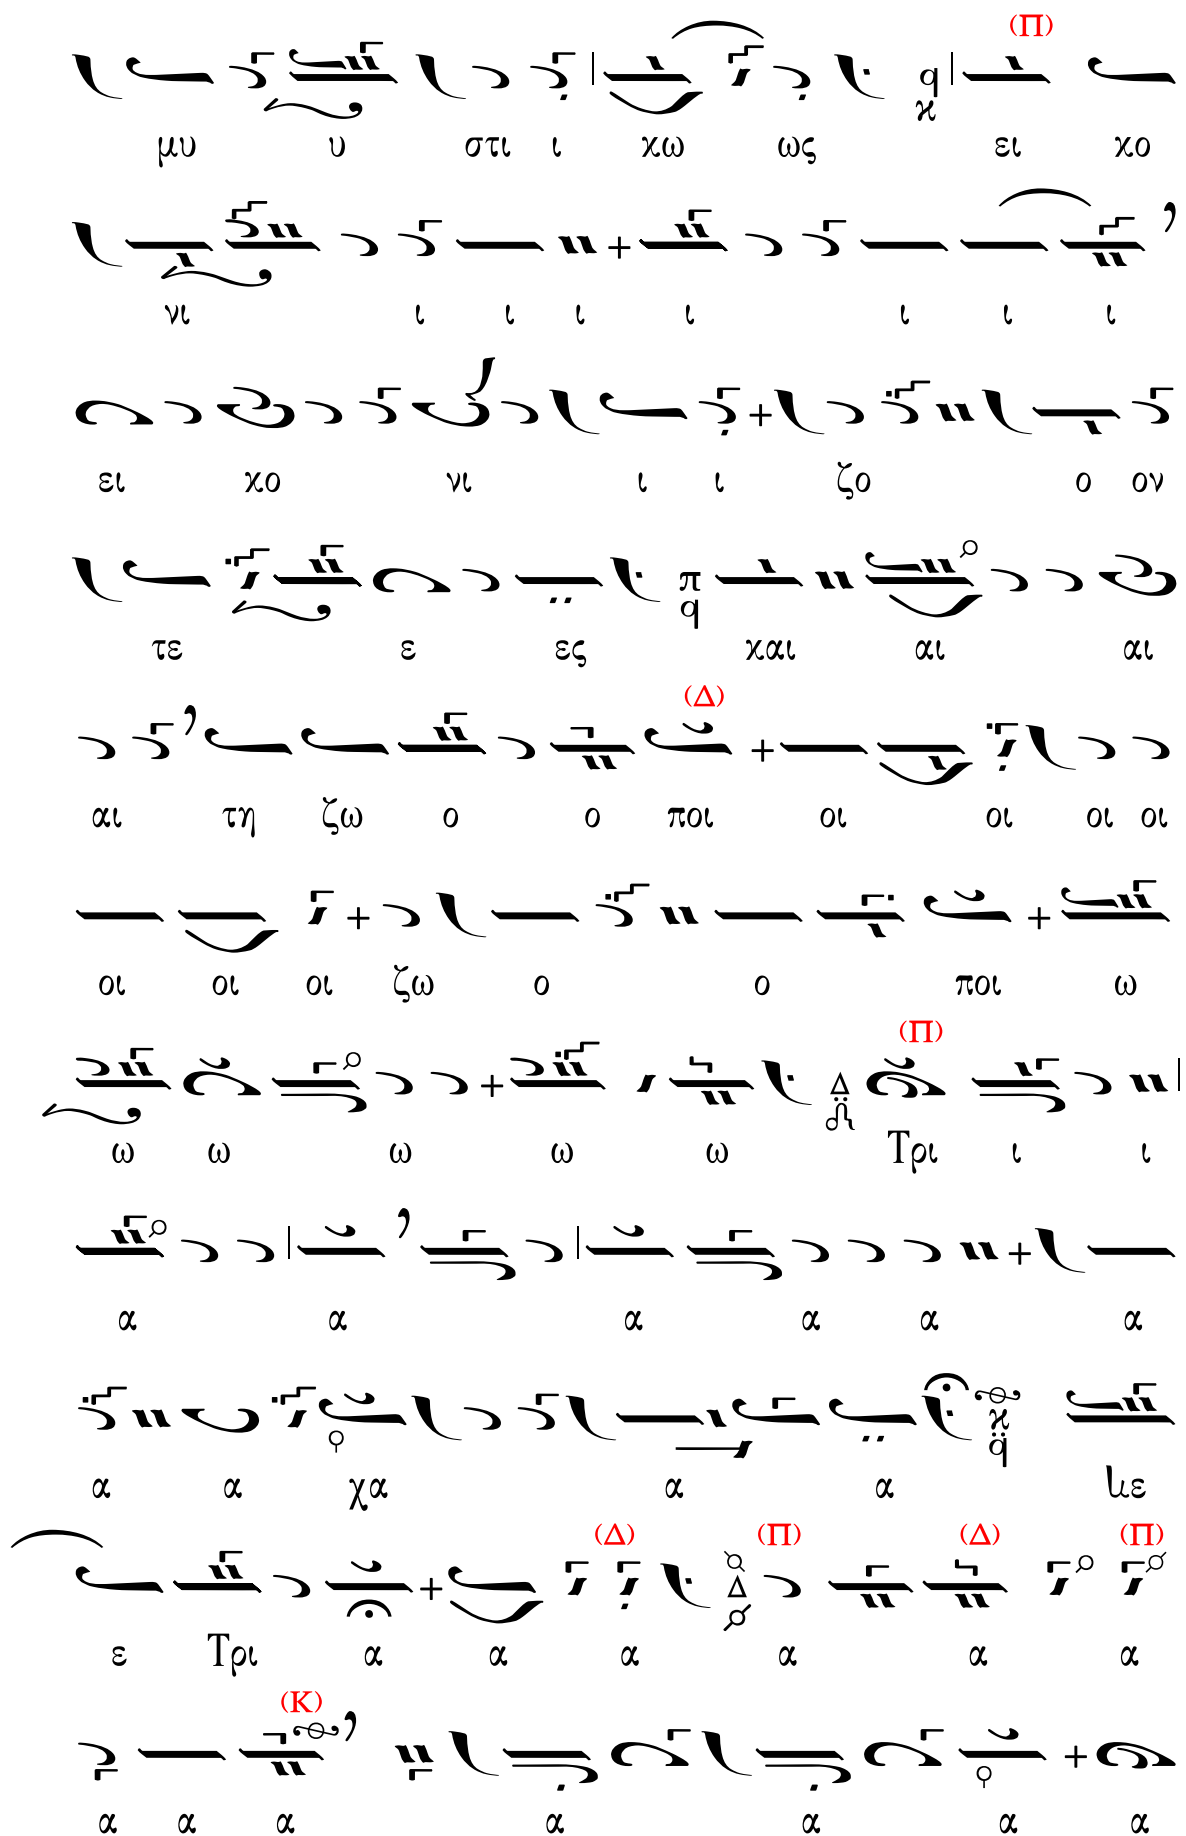 (Π)
μυ υ στι ι κω ως ει κο
νι ι ι ι ι ι ι ι
ει κο νι ι ι ζο ο ον
τε ε ες και αι αι
(Δ)
αι τη ζω ο ο ποι οι οι οι οι
οι οι οι ζω ο ο ποι ω
(Π)
ω ω ω ω ω Τρι ι ι
α α α α α α
α α χα α α με
(Δ) (Π) (Δ) (Π)
ε Τρι α α α α α α
(Κ)
α α α α α α α